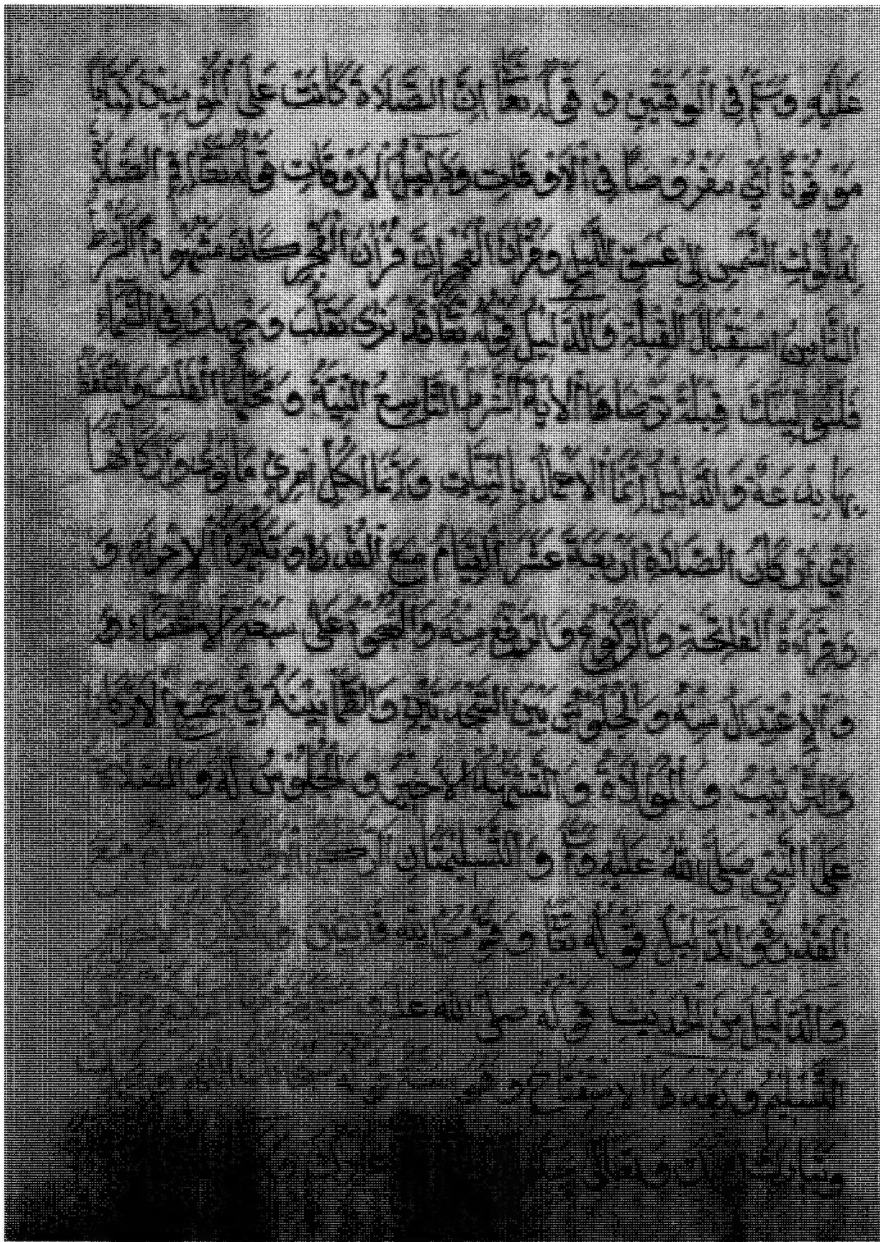 عَلَيْهِ وَسَلَّمَ فِي الْوَقْتَيْنِ وَ قَوْلُهُ تَعَالَى إِنَّ الصَّلَاةَ كَانَتْ عَلَى الْمُؤْمِنِينَ كِتَابًا
مَوْقُوتًا أَيْ مَفْرُوضًا فِي الْأَوْقَاتِ وَدَلِيلُ الْأَوْقَاتِ قَوْلُهُ تَعَالَى أَقِمِ الصَّلَاةَ
لِدُلُوكِ الشَّمْسِ إِلَى غَسَقِ اللَّيْلِ وَقُرْآنَ الْفَجْرِ إِنَّ قُرْآنَ الْفَجْرِ كَانَ مَشْهُودًا الشَّرْطُ
الثَّامِنُ اسْتِقْبَالُ الْقِبْلَةِ وَالدَّلِيلُ قَوْلُهُ تَعَالَى قَدْ نَرَى تَقَلُّبَ وَجْهِكَ فِي السَّمَاءِ
فَلَنُوَلِّيَنَّكَ قِبْلَةً تَرْضَاهَا الْآيَةُ الشَّرْطُ التَّاسِعُ النِّيَّةُ وَمَحَلُّهَا الْقَلْبُ وَالتَّلَفُّظُ
بِهَا بِدْعَةٌ وَالدَّلِيلُ إِنَّمَا الْأَعْمَالُ بِالنِّيَّاتِ وَإِنَّمَا لِكُلِّ امْرِئٍ مَا نَوَى وَأَرْكَانُهَا
أَيْ أَرْكَانُ الصَّلَاةِ أَرْبَعَةَ عَشَرَ الْقِيَامُ مَعَ الْقُدْرَةِ وَتَكْبِيرَةُ الْإِحْرَامِ وَ
وَقِرَاءَةُ الْفَاتِحَةِ وَالرُّكُوعُ وَالرَّفْعُ مِنْهُ وَالسُّجُودُ عَلَى سَبْعَةِ الْأَعْضَاءِ
وَالْإِعْتِدَالُ مِنْهُ وَالْجُلُوسُ بَيْنَ السَّجْدَتَيْنِ وَالطُّمَأْنِينَةُ فِي جَمِيعِ الْأَرْكَانِ
وَالتَّرْتِيبُ وَالْمُوَالَاةُ وَالتَّشَهُّدُ الْأَخِيرُ وَالْجُلُوسُ لَهُ وَالصَّلَاةُ
عَلَى النَّبِيِّ صَلَّى اللهُ عَلَيْهِ وَالتَّسْلِيمَتَانِ الرُّكْنُ الْأَوَّلُ الْقِيَامُ مَعَ
الْقُدْرَةِ وَالدَّلِيلُ قَوْلُهُ تَعَالَى وَقُومُوا لِلَّهِ قَانِتِينَ
وَالدَّلِيلُ مِنَ الْحَدِيثِ قَوْلُهُ صَلَّى اللهُ عَلَيْهِ
التَّسْلِيمُ وَبَعْدَهَا الْإِسْتِفْتَاحُ وَهُوَ سُنَّةٌ
وَتَبَارَكَ اسْمُكَ وَتَعَالَى